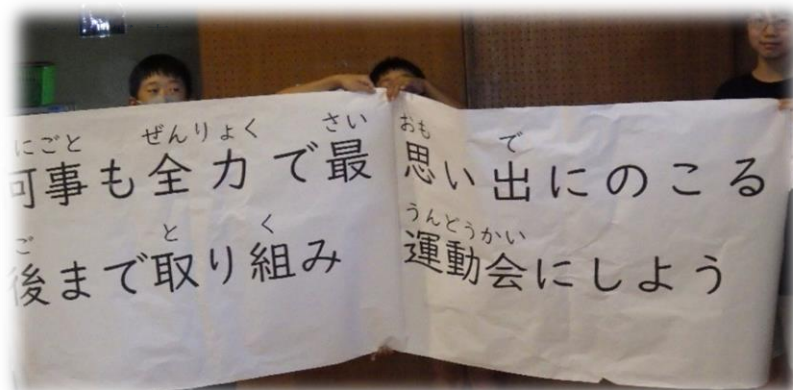 にごと ぜんりょく さい
何事も全力で最
ご と く
後まで取り組み
おも で
思い出にのこる
うんどうかい
運動会にしよう